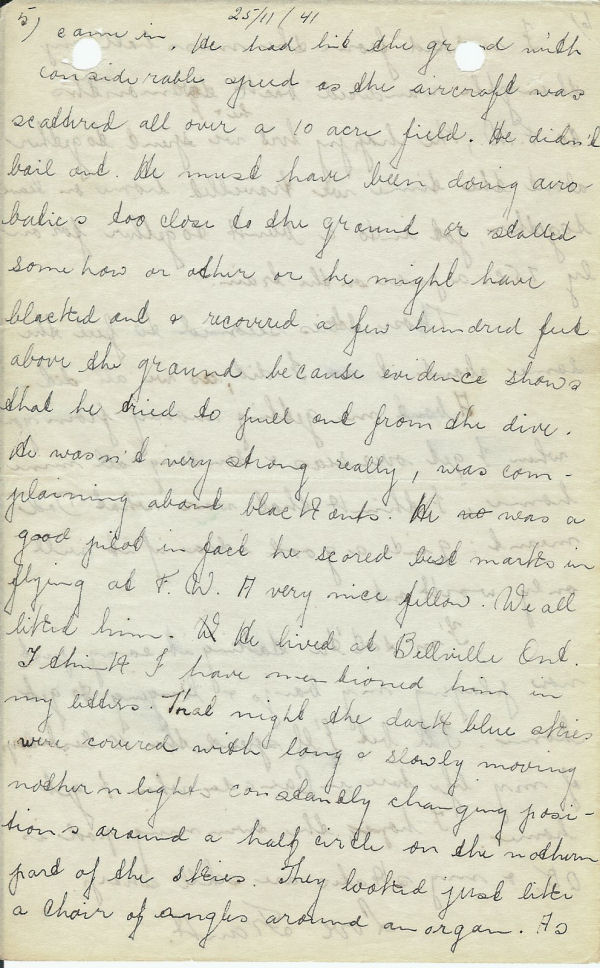 5) 25/11/41
came in. He had hit the ground with
considerable speed as the aircraft was
scattered all over a 10 acre field. He didn't
bail out. He must have been doing aero
batics too close to the ground or stalled
some how or other or he might have
blacked out & recovered a few hundred feet
above the ground because evidence shows
that he tried to pull out from the dive.
He wasn't very strong really, was com-
plaining about black outs. He was a
good pilot in fact he scored best marks in
flying at F. W. A very nice fellow. We all
liked him. He lived at Bellville Ont.
I think I have mentioned him in
my letters. That night the dark blue skies
were covered with long & slowly moving
nothern light constantly changing posi-
tions around a half circle on the nothern
part of the skies. They looked just like
a choir of angles around an organ. As